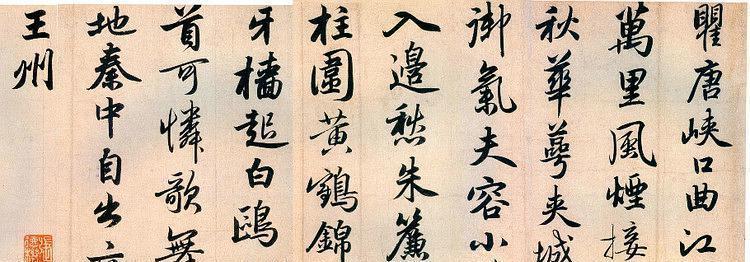 瞿唐峽口曲江
萬里風煙接
秋華萼夾城
御氣夫容小
入邊愁朱簾
柱圍黃鶴錦
牙檣起白鷗
首可憐歌
地秦中自古
王州